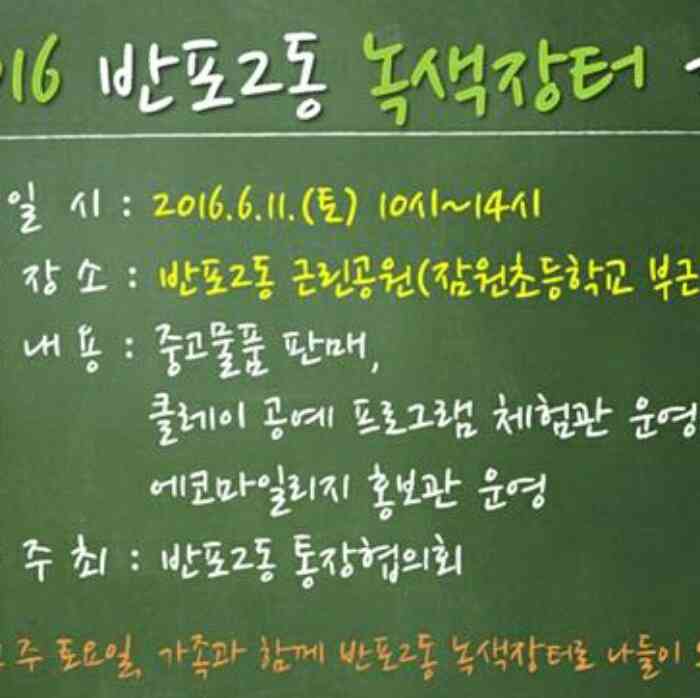 16 반포2동 녹색장터
일 시 : 2016.6.11.(토) 10시~14시
장 소 : 반포2동 근린공원(잠원초등학교 부근
내 용 : 중고물품 판매,
클레이 공예 프로그램 체험관 운영
에코마일리지 홍보관 운영
주 최 : 반포2동 통장협의회
주 토요일, 가족과 함께 반포2동 녹색장터로 나들이